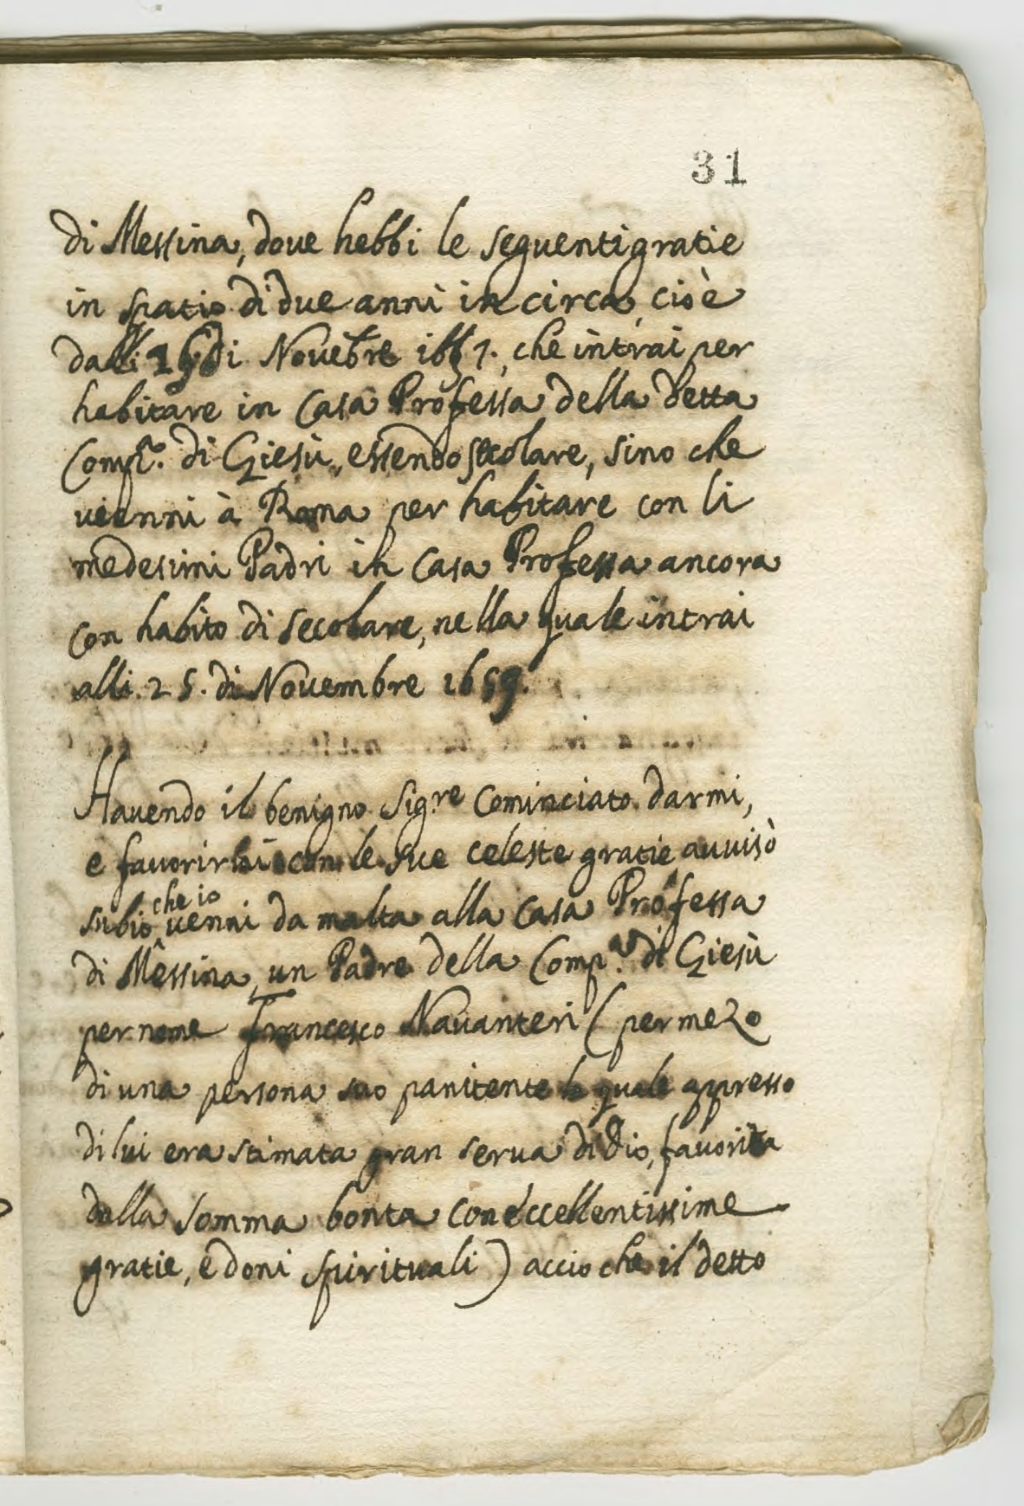 31
di Messina, doue hebbi le seguenti gratie
in spatio di due anni in circa, cioè
dalli di Nouebre 1657. che intrai per
habitare in Casa Professa della detta
Compa. di Giesù, essendo secolare, sino che
uienni à Roma per habitare con li
medesimi Padri in Casa Professa ancora
con habito di secolare, nella quale intrai
alli. 25. di Nouembre 1659.
Hauendo il benigno Sig.re Cominciato darmi,
e fauorirmi con le sue celeste gratie auuisò
subio che io uenni da malta alla Casa Professa
di Messina, un Padre della Comp.a di Giesù
per nome Francesco Nauanteri (per mezo
di una persona suo panitente la quale appresso
di lui era stimata gran serua di Dio, fauorita
dalla somma bonta con eccellentissime
gratie, e doni spirituali) accio che il detto